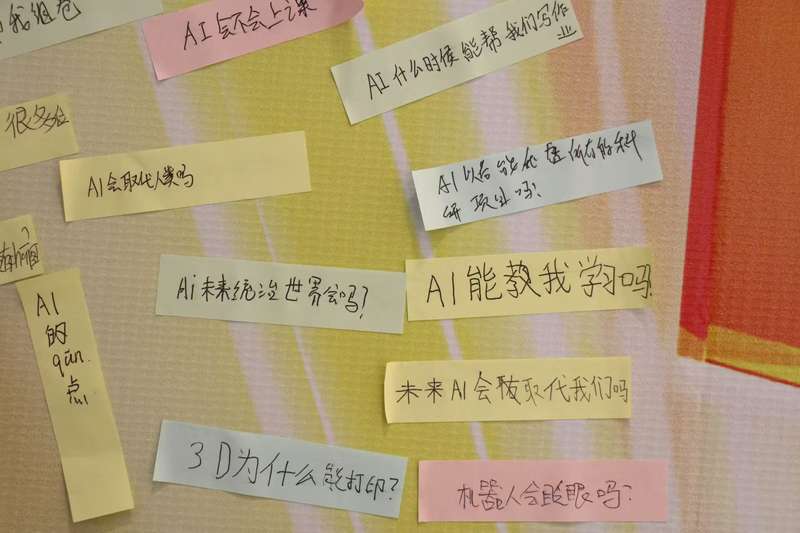 我组卷
AI会不会上课
AI什么时候能帮我们写作
业
很多
AI会取代人类吗
AI以后能代替所有的科
研项目吗?
Ai未来统治世界会吗?
AI能教我学习吗?
AI
的
qūn
点
未来AI会取代我们吗
3D为什么能打印?
机器人会眨眼吗?